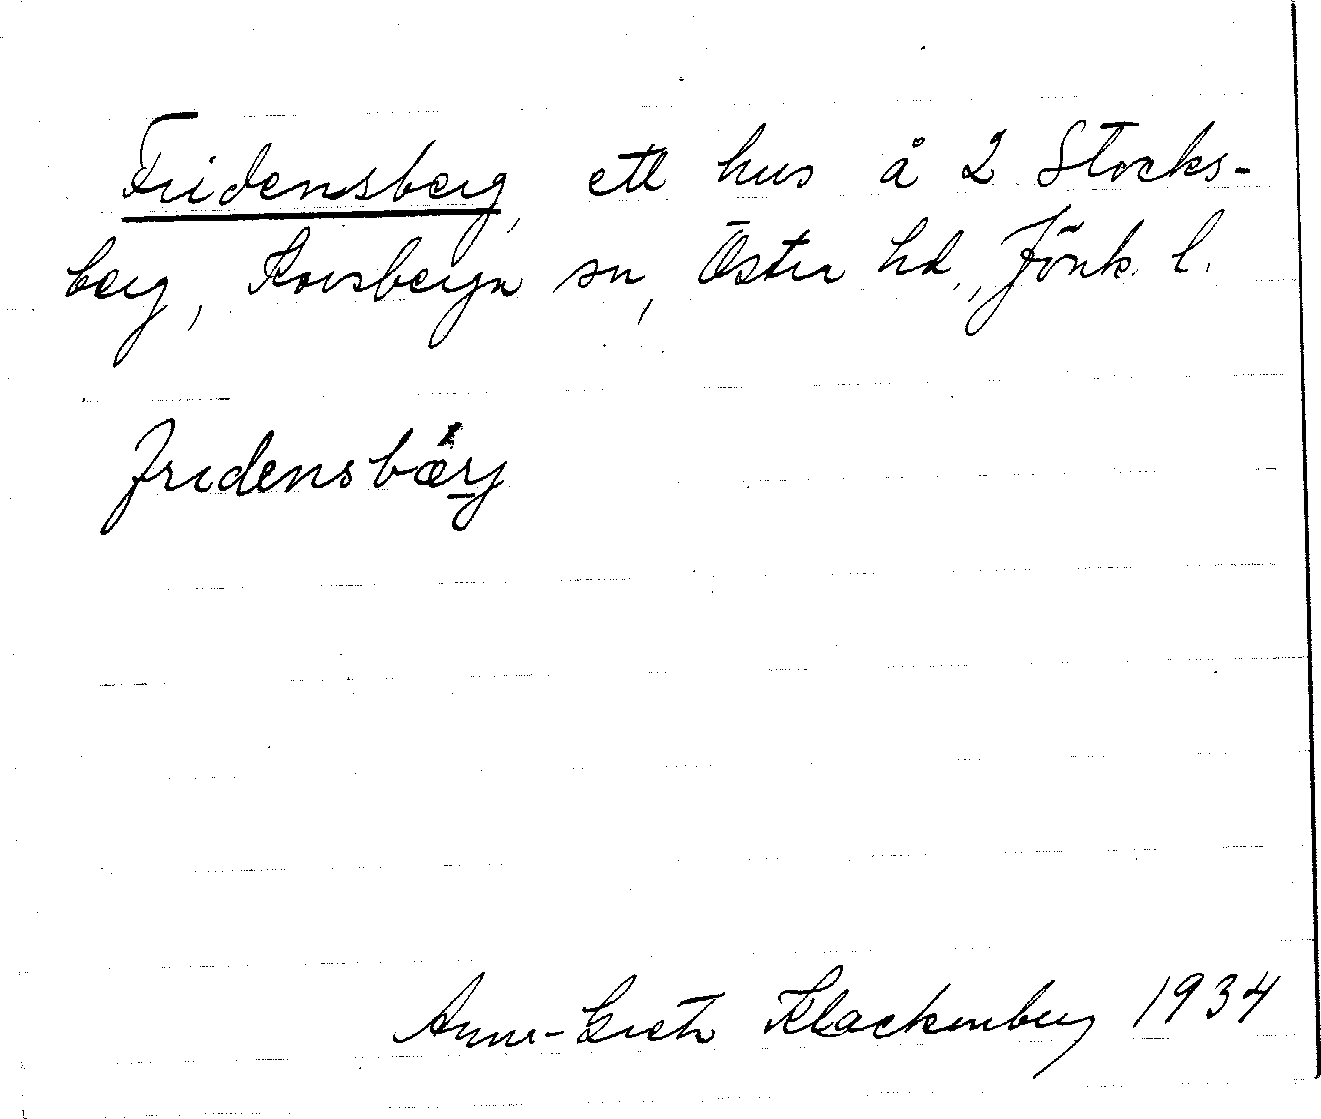 Fridensberg, ett hus å 2 Stocks-
berg, Korsberga sn, Östra hd., Jönk. l.
fridensbärj
Anna-Greta Klackenberg 1934